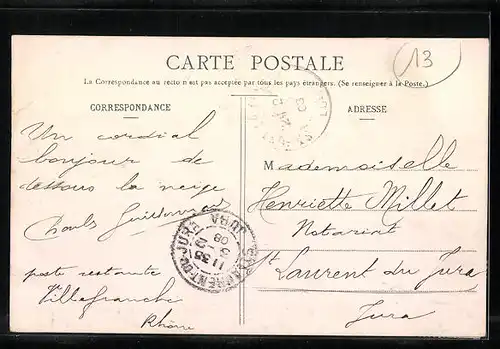 13
CARTE POSTALE
La Correspondance au recto n'est pas acceptée par tous les pays étrangers. (Se renseigner à la Poste.)
CORRESPONDANCE
ADRESSE
Un cordial
bonjour de
dessous la neige
Charles
poste restante
Villefranche
Rhône
Mademoiselle
Henriette Millet
Notariat
St Laurent du Jura
Jura
ST LAURENT-DU-JURA JURA
11 35
08